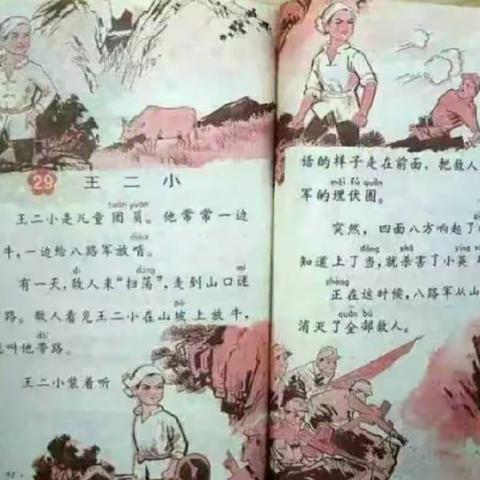 29 王二小
tuán yuán
王二小是儿童团员。他常常一边
shào
牛，一边给八路军放哨。
dí dàng mí
有一天，敌人来“扫荡”，走到山口迷
pō
路。敌人看见王二小在山坡上放牛，
dài
叫他带路。
王二小装着听
话的样子走在前面，把敌人
mái fú quān
军的埋伏圈。
突然，四面八方响起了
dàng shā yīng
知道上了当，就杀害了小英
zhèng
正在这时候，八路军从山
quán bù
消灭了全部敌人。